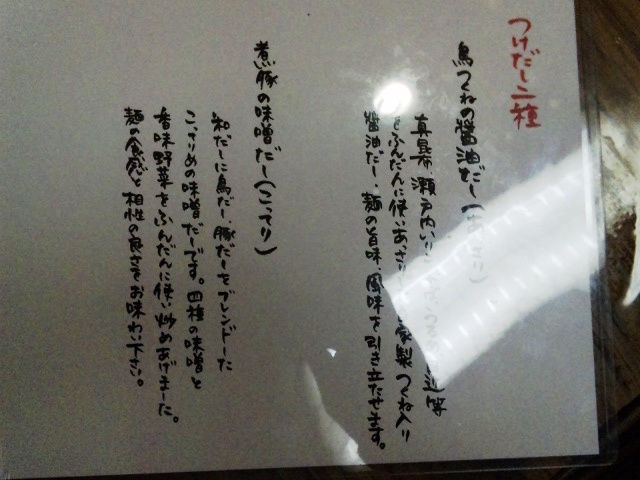 つけだし二種
鳥つくねの醤油だし(
真昆布、瀬戸内いり
をふんだんに使いあっさり 家製つくね入り
醤油だし、麺の旨味、風味を引き立たせます。
煮豚の味噌だし(こってり)
和だしに鳥だし、豚だしをブレンドした
こってりめの味噌だしです。四種の味噌と
香味野菜をふんだんに使い炒めあげました。
麺の食感と相性の良さをお味わい下さい。